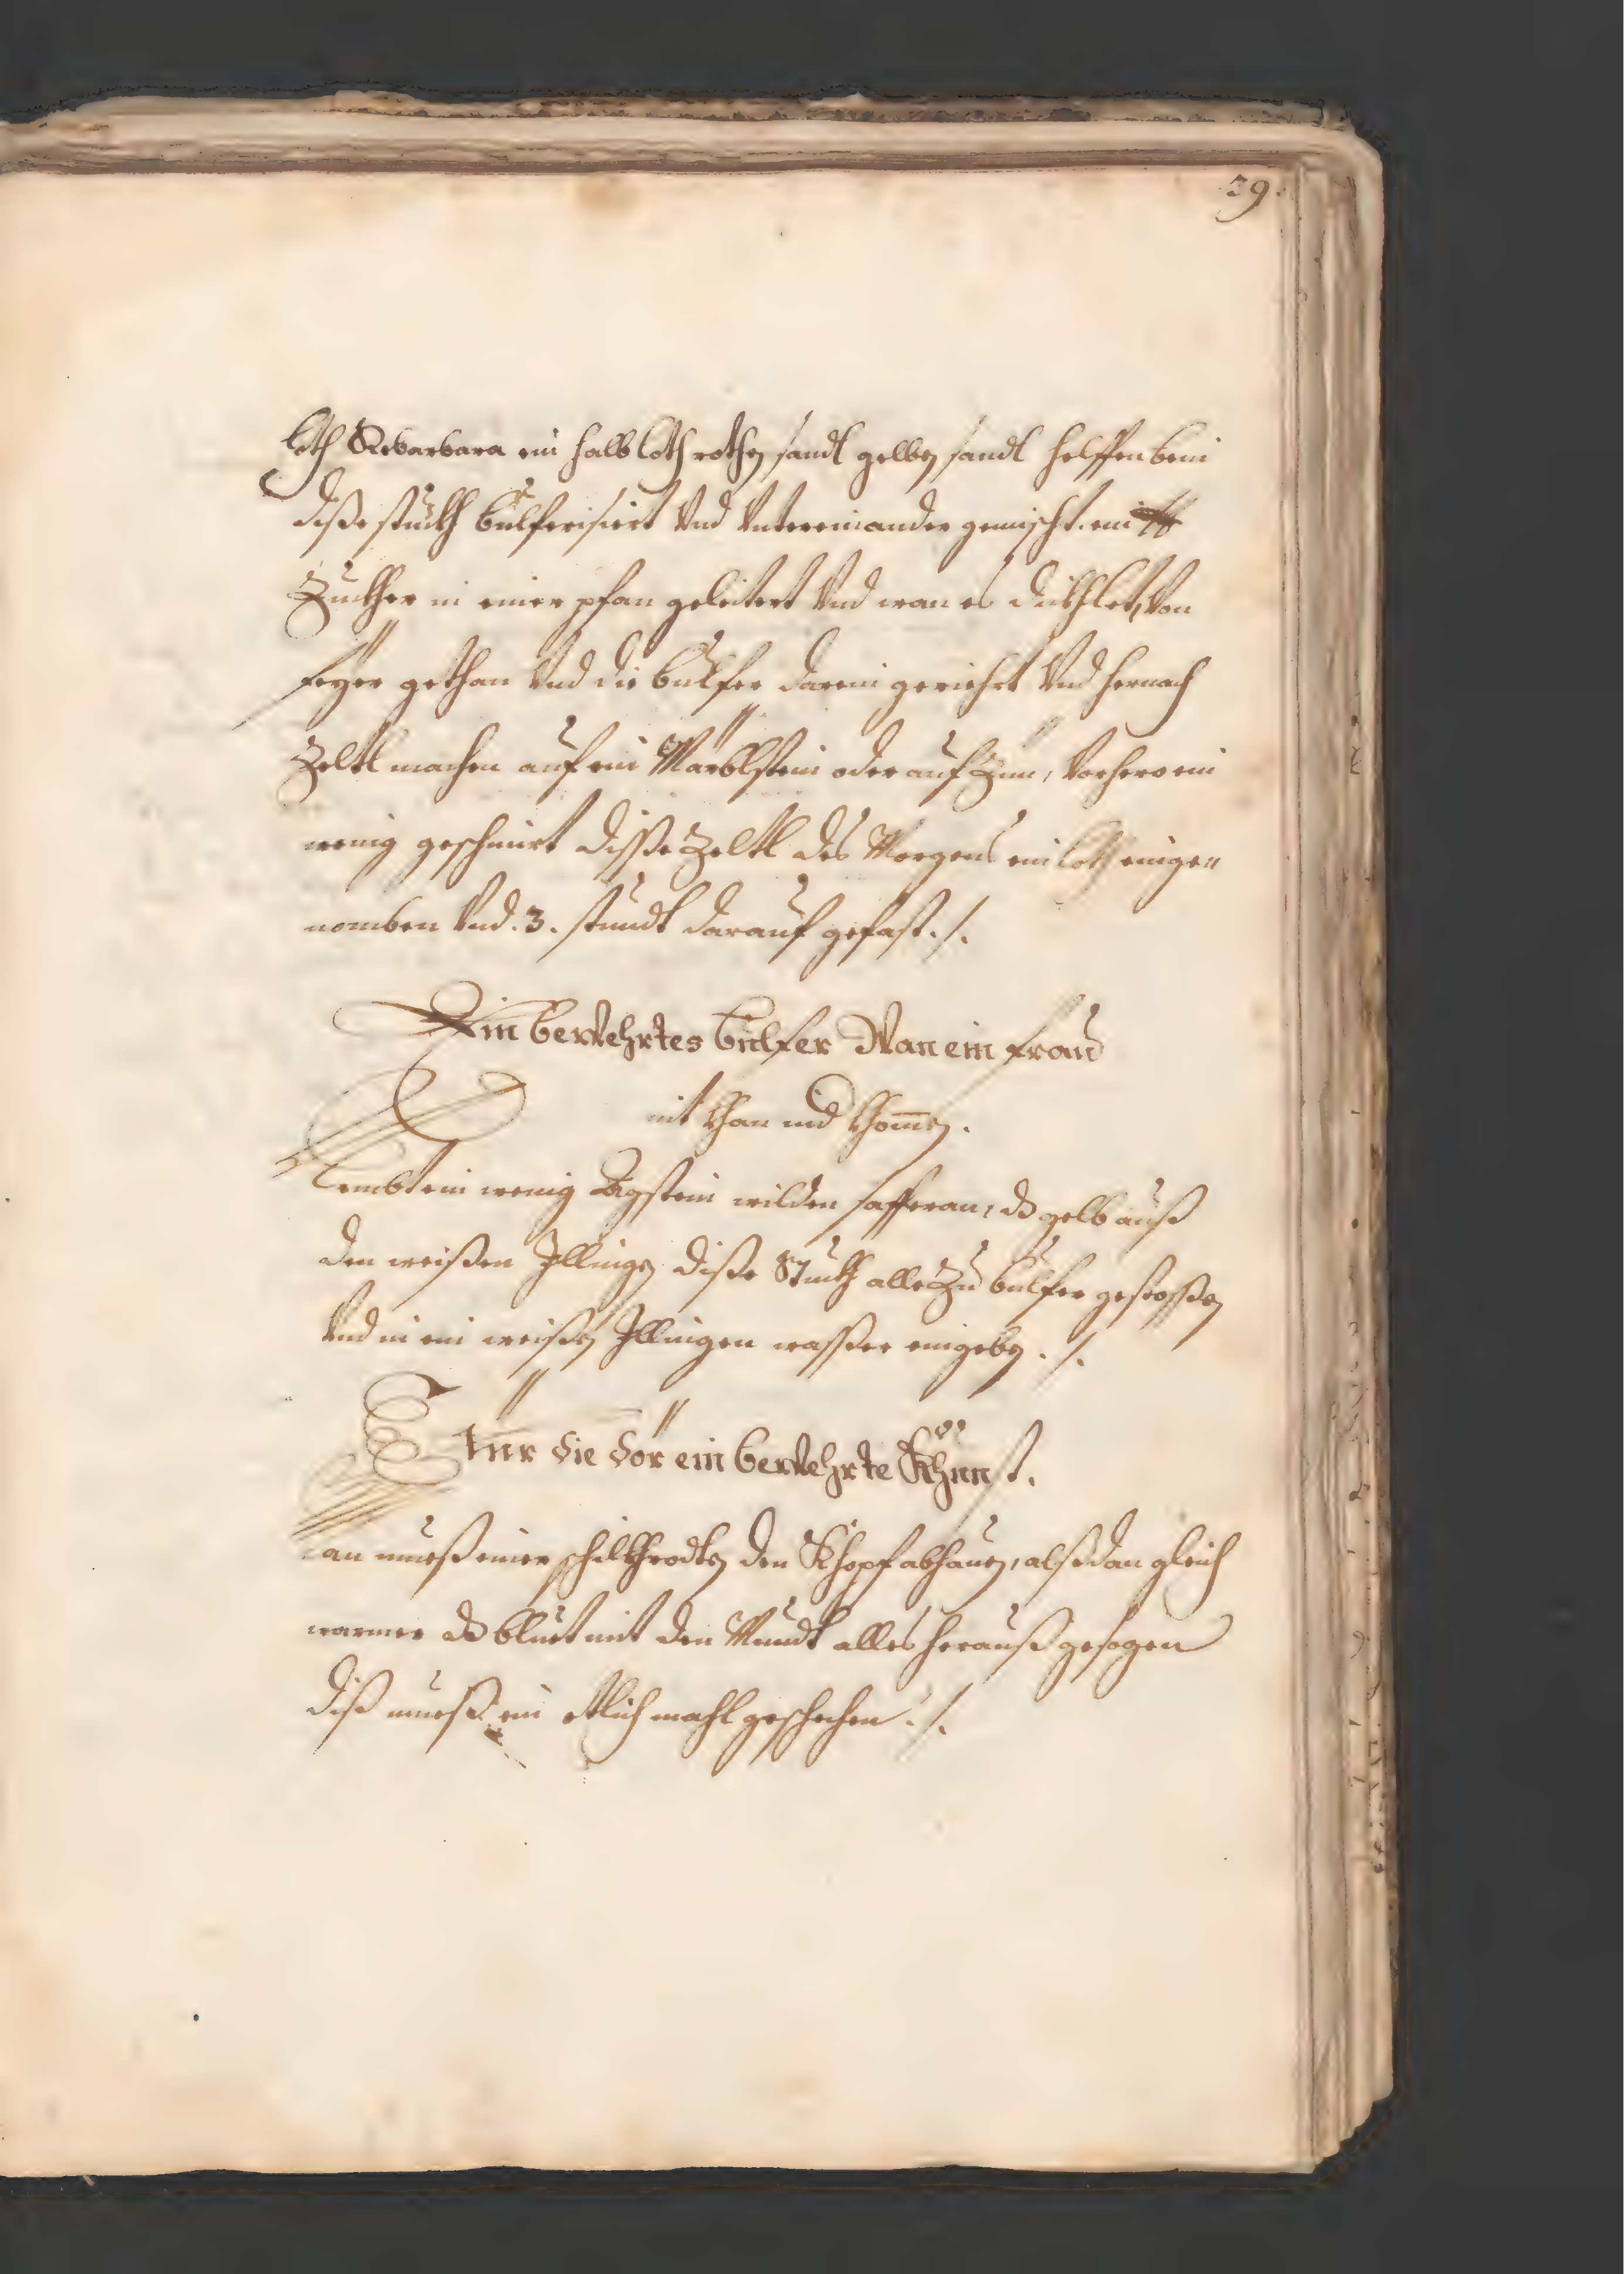 39.
loth Rebarbara ein halb loth rothen sandl gelben sandl helffenbein
diße stuckh bulferisiert vnd vntereinander gemischt. ein ℔
Zuckher in einer pfan geleitert vnd wan es dickhlet, von
feyer gethan vnd die bulfer darein geriehrt vnd hernach
Zeltl machen auf ein Marblstein oder auf Zinn, vorhero ein
wenig geschmirt diße Zeltl des Morgens ein loth einge=
nomben vnd .3. stundt darauf gefast ./.
Ein bewehrtes bulfer Wan ein frau
nit khan nid khommen.
Nembt ein wenig Agstein wilden saffran, dz gelb auß
den weißen Illingen diße Stuckh alle Zu bulfer gestoßen
vnd in ein weißen Illingen waßer eingeben ./.
Für die dör ein bewehrte Khunst.
Man mueß einer schilthrodten den Khopf abhauen, alßdan gleich
warmer dz bluet mit den Mundt alles herauß gesogen
diß mueß ein etlich mahl geschehen ./.